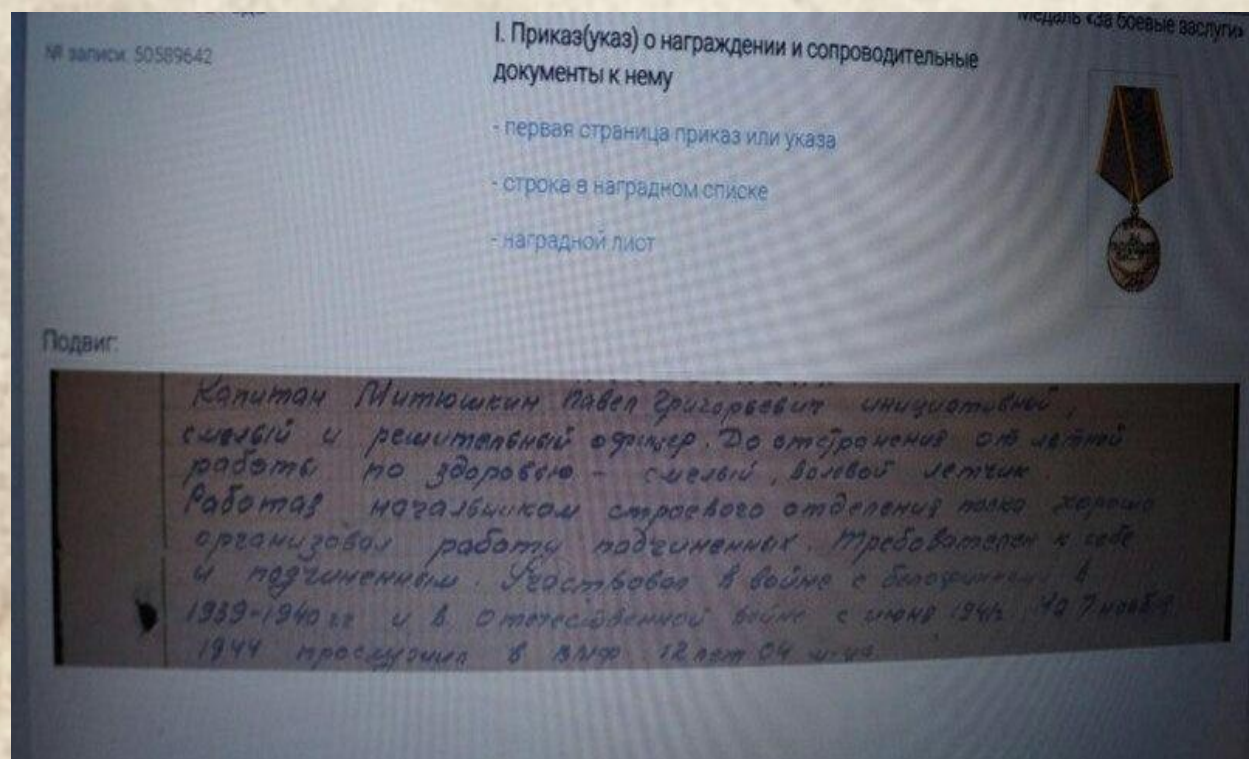 № записи: 50589642
I. Приказ(указ) о награждении и сопроводительные
документы к нему
Медаль «За боевые заслуги»
- первая страница приказ или указа
- строка в наградном списке
- наградной лист
Подвиг:
Капитан Митюшкин Павел Григорьевич инициативный,
смелый и решительный офицер. До отстранения от летной
работы по здоровью - смелый, волевой летчик
Работая начальником строевого отделения полка хорошо
организовал работу подчиненных. Требователен к себе
и подчиненным. Участвовал в войне с белофиннами в
1939-1940 гг и в Отечественной войне с июня 1941г. На 7 ноября
1944 прослужил в ВМФ 12 лет 04 м-ца